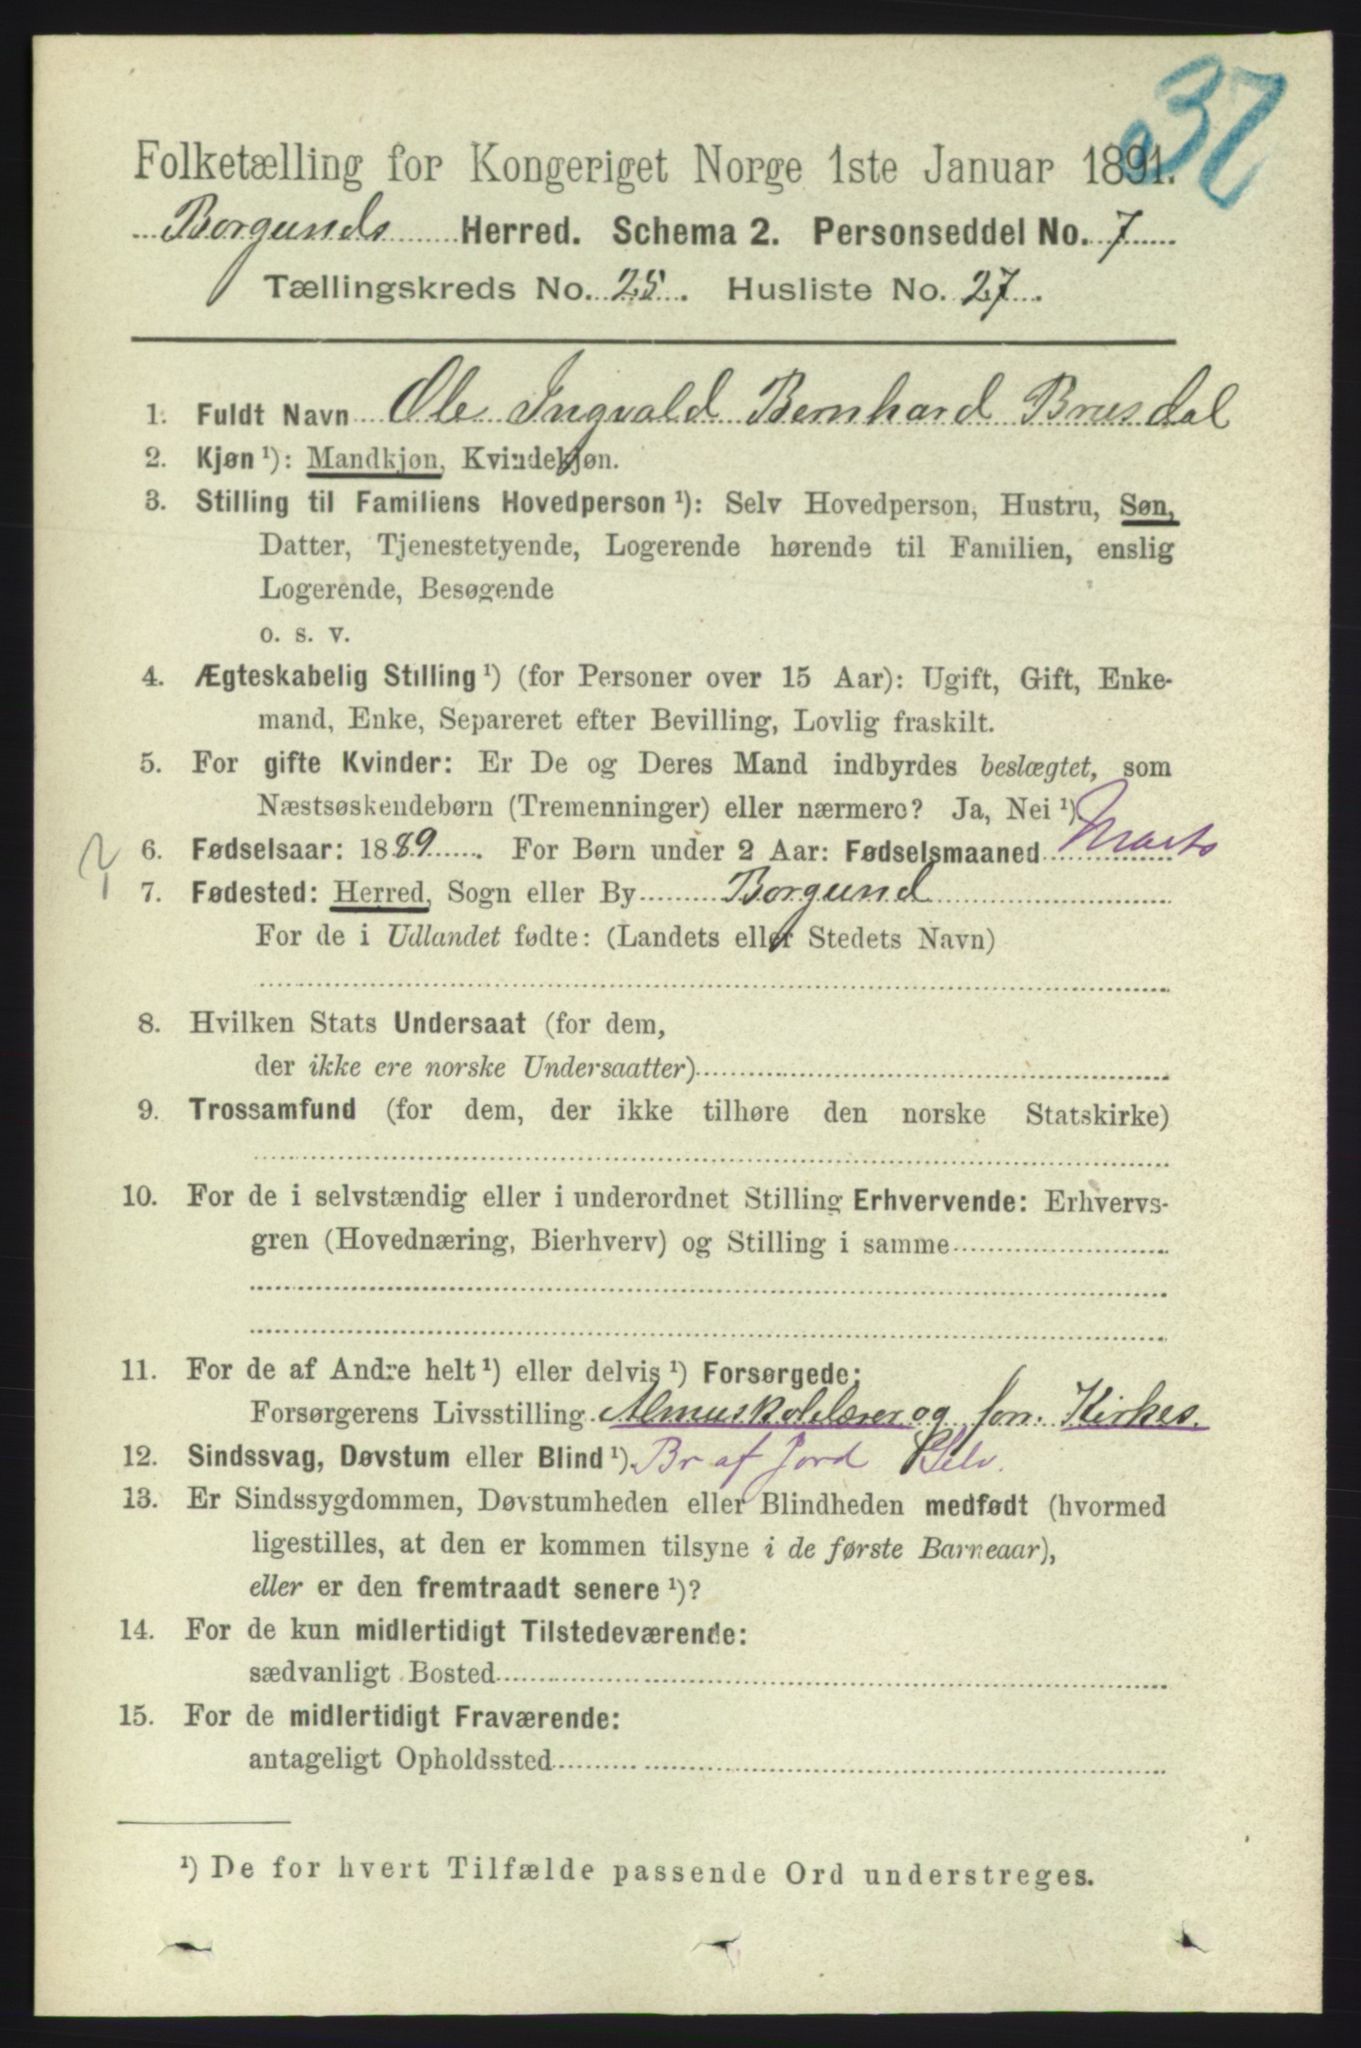 37
Folketælling for Kongeriget Norge 1ste Januar 1891.
Borgunds Herred. Schema 2. Personseddel No. 7
Tællingskreds No. 25. Husliste No. 27.
1. Fuldt Navn Ole Ingvald Bernhard Brusdal
2. Kjøn ¹): Mandkjøn, Kvindekjøn.
3. Stilling til Familiens Hovedperson ¹): Selv Hovedperson, Hustru, Søn,
Datter, Tjenestetyende, Logerende hørende til Familien, enslig
Logerende, Besøgende
o. s. v.
4. Ægteskabelig Stilling ¹) (for Personer over 15 Aar): Ugift, Gift, Enke-
mand, Enke, Separeret efter Bevilling, Lovlig fraskilt.
5. For gifte Kvinder: Er De og Deres Mand indbyrdes beslægtet, som
Næstsøskendebørn (Tremenninger) eller nærmere? Ja, Nei ¹)
6. Fødselsaar: 1889. For Børn under 2 Aar: Fødselsmaaned Marts
7. Fødested: Herred, Sogn eller By Borgund
For de i Udlandet fødte: (Landets eller Stedets Navn)
8. Hvilken Stats Undersaat (for dem,
der ikke ere norske Undersaatter)
9. Trossamfund (for dem, der ikke tilhøre den norske Statskirke)
10. For de i selvstændig eller i underordnet Stilling Erhvervende: Erhvervs-
gren (Hovednæring, Bierhverv) og Stilling i samme
11. For de af Andre helt ¹) eller delvis ¹) Forsørgede:
Forsørgerens Livsstilling Almuskolelærer og for. Kirkes.
12. Sindssvag, Døvstum eller Blind ¹). Br af Jord Selv.
13. Er Sindssygdommen, Døvstumheden eller Blindheden medfødt (hvormed
ligestilles, at den er kommen tilsyne i de første Barneaar),
eller er den fremtraadt senere ¹)?
14. For de kun midlertidigt Tilstedeværende:
sædvanligt Bosted
15. For de midlertidigt Fraværende:
antageligt Opholdssted
¹) De for hvert Tilfælde passende Ord understreges.